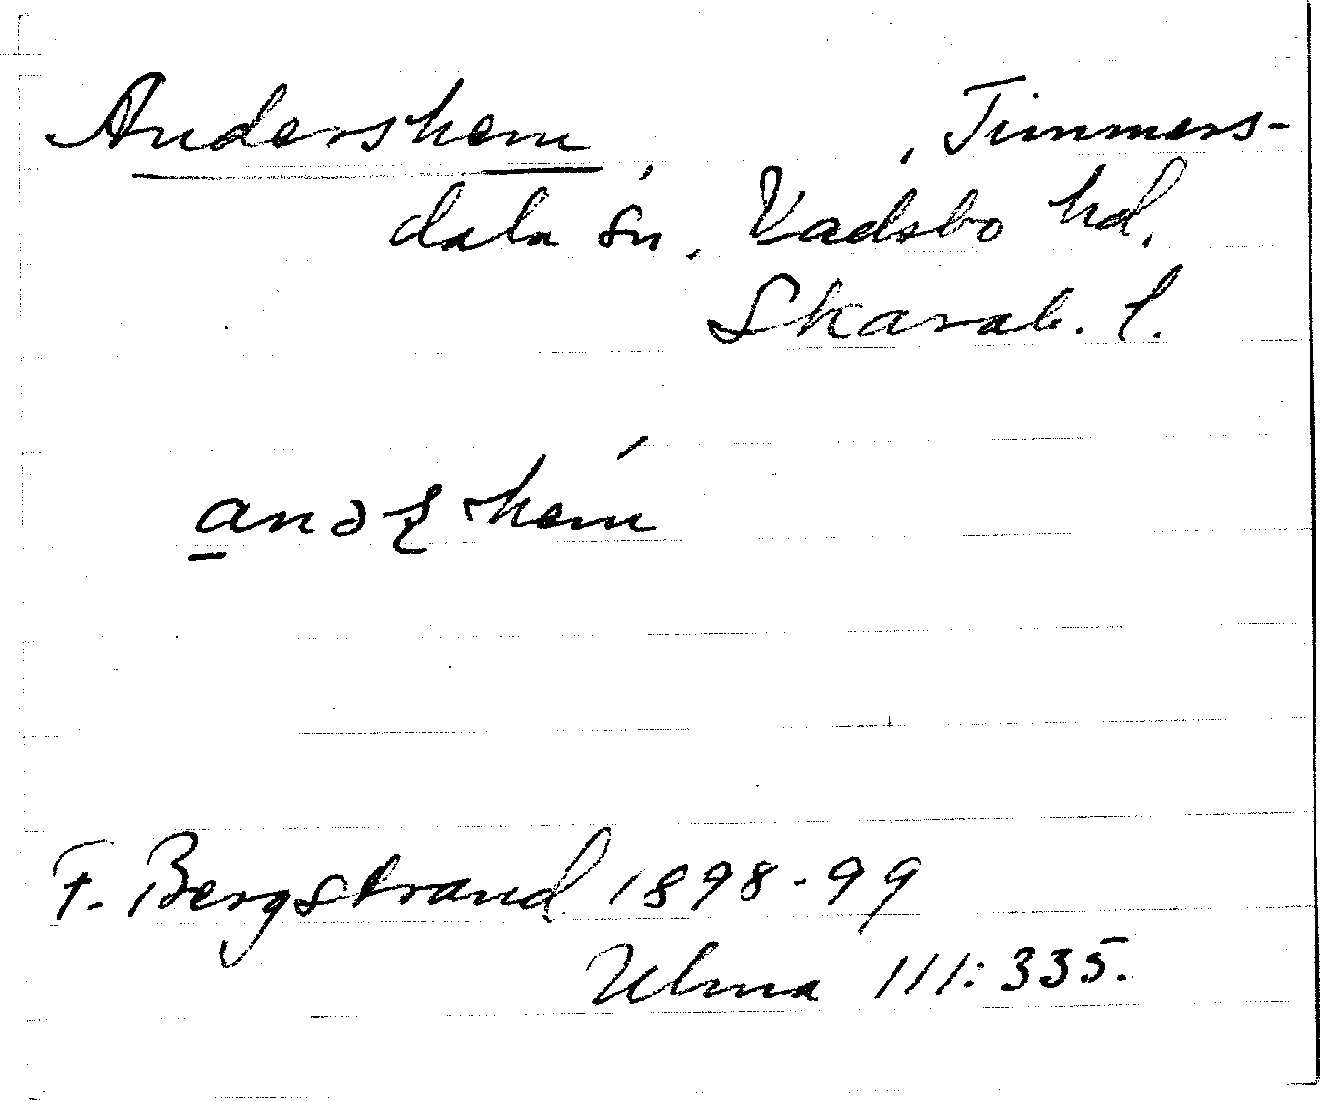 Andershem, , Timmers-
dala sn, Vadsbo hd,
Skarab. l.
anəʂhem
F. Bergstrand 1898-99
Ulma 111:335.